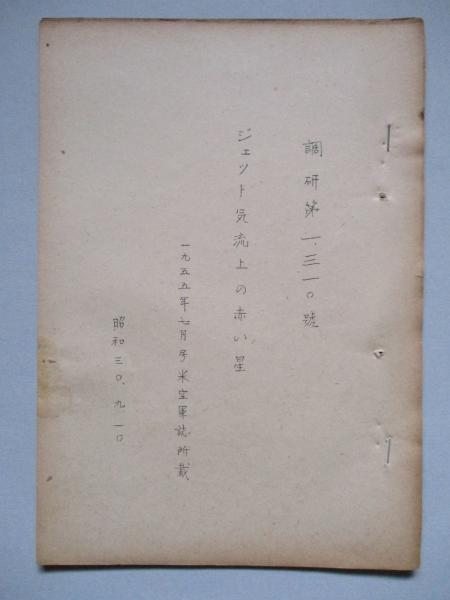 調研第一、三一〇號
ジェット気流上の赤い星
一九五五年七月号米空軍誌所載
昭和三〇、九、一〇